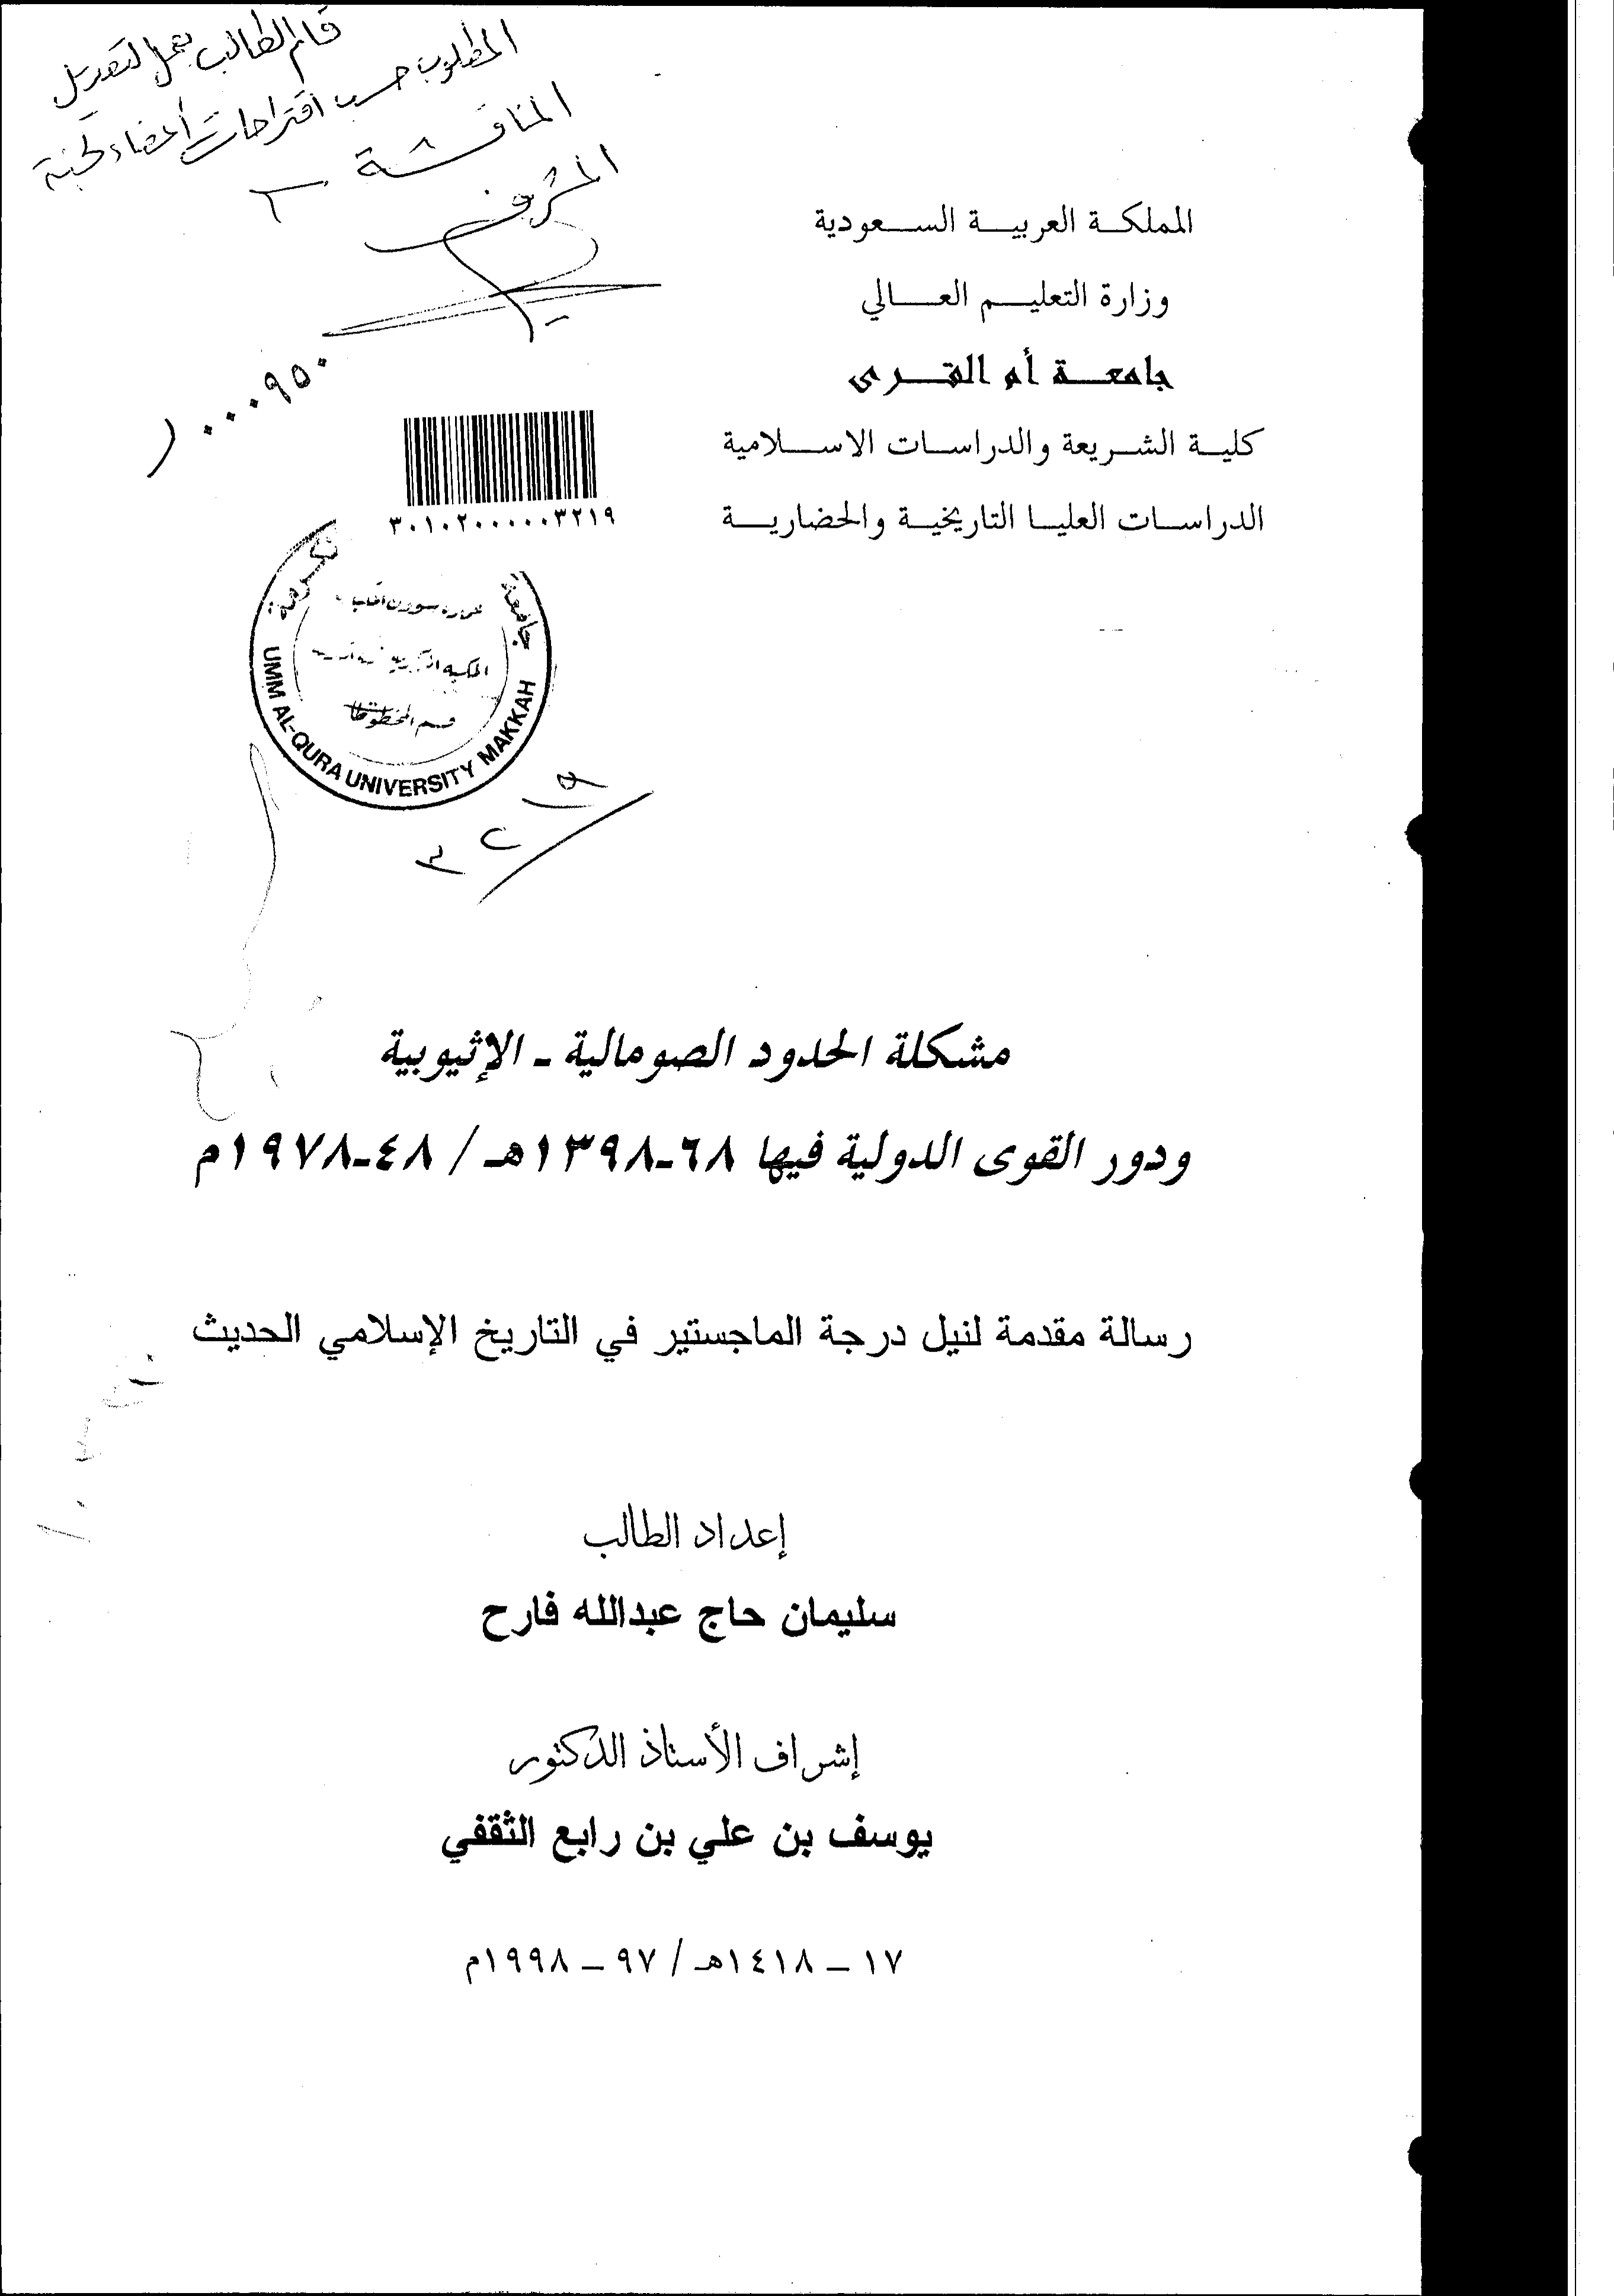 قام الطالب بعمل التعديل
المطلوب حسب اقتراحات أعضاء لجنة
المناقشة
المشرف
المملكة العربية السعودية
وزارة التعليم العالي
جامعة أم القرى
كلية الشريعة والدراسات الاسلامية
الدراسات العليا التاريخية والحضارية
٠٠٠٩٥٠
٣٠١٠٢٠٠٠٠٠٣٢١٩
جامعة
قسم المخطوطات
UMM AL-QURA UNIVERSITY MAKKAH
٣٢١٩
مشكلة الحدود الصومالية ـ الإثيوبية
ودور القوى الدولية فيها ٦٨ـ١٣٩٨هـ / ٤٨ـ١٩٧٨م
رسالة مقدمة لنيل درجة الماجستير في التاريخ الإسلامي الحديث
إعداد الطالب
سليمان حاج عبدالله فارح
إشراف الأستاذ الدكتور
يوسف بن علي بن رابع الثقفي
١٧ – ١٤١٨هـ / ٩٧ – ١٩٩٨م